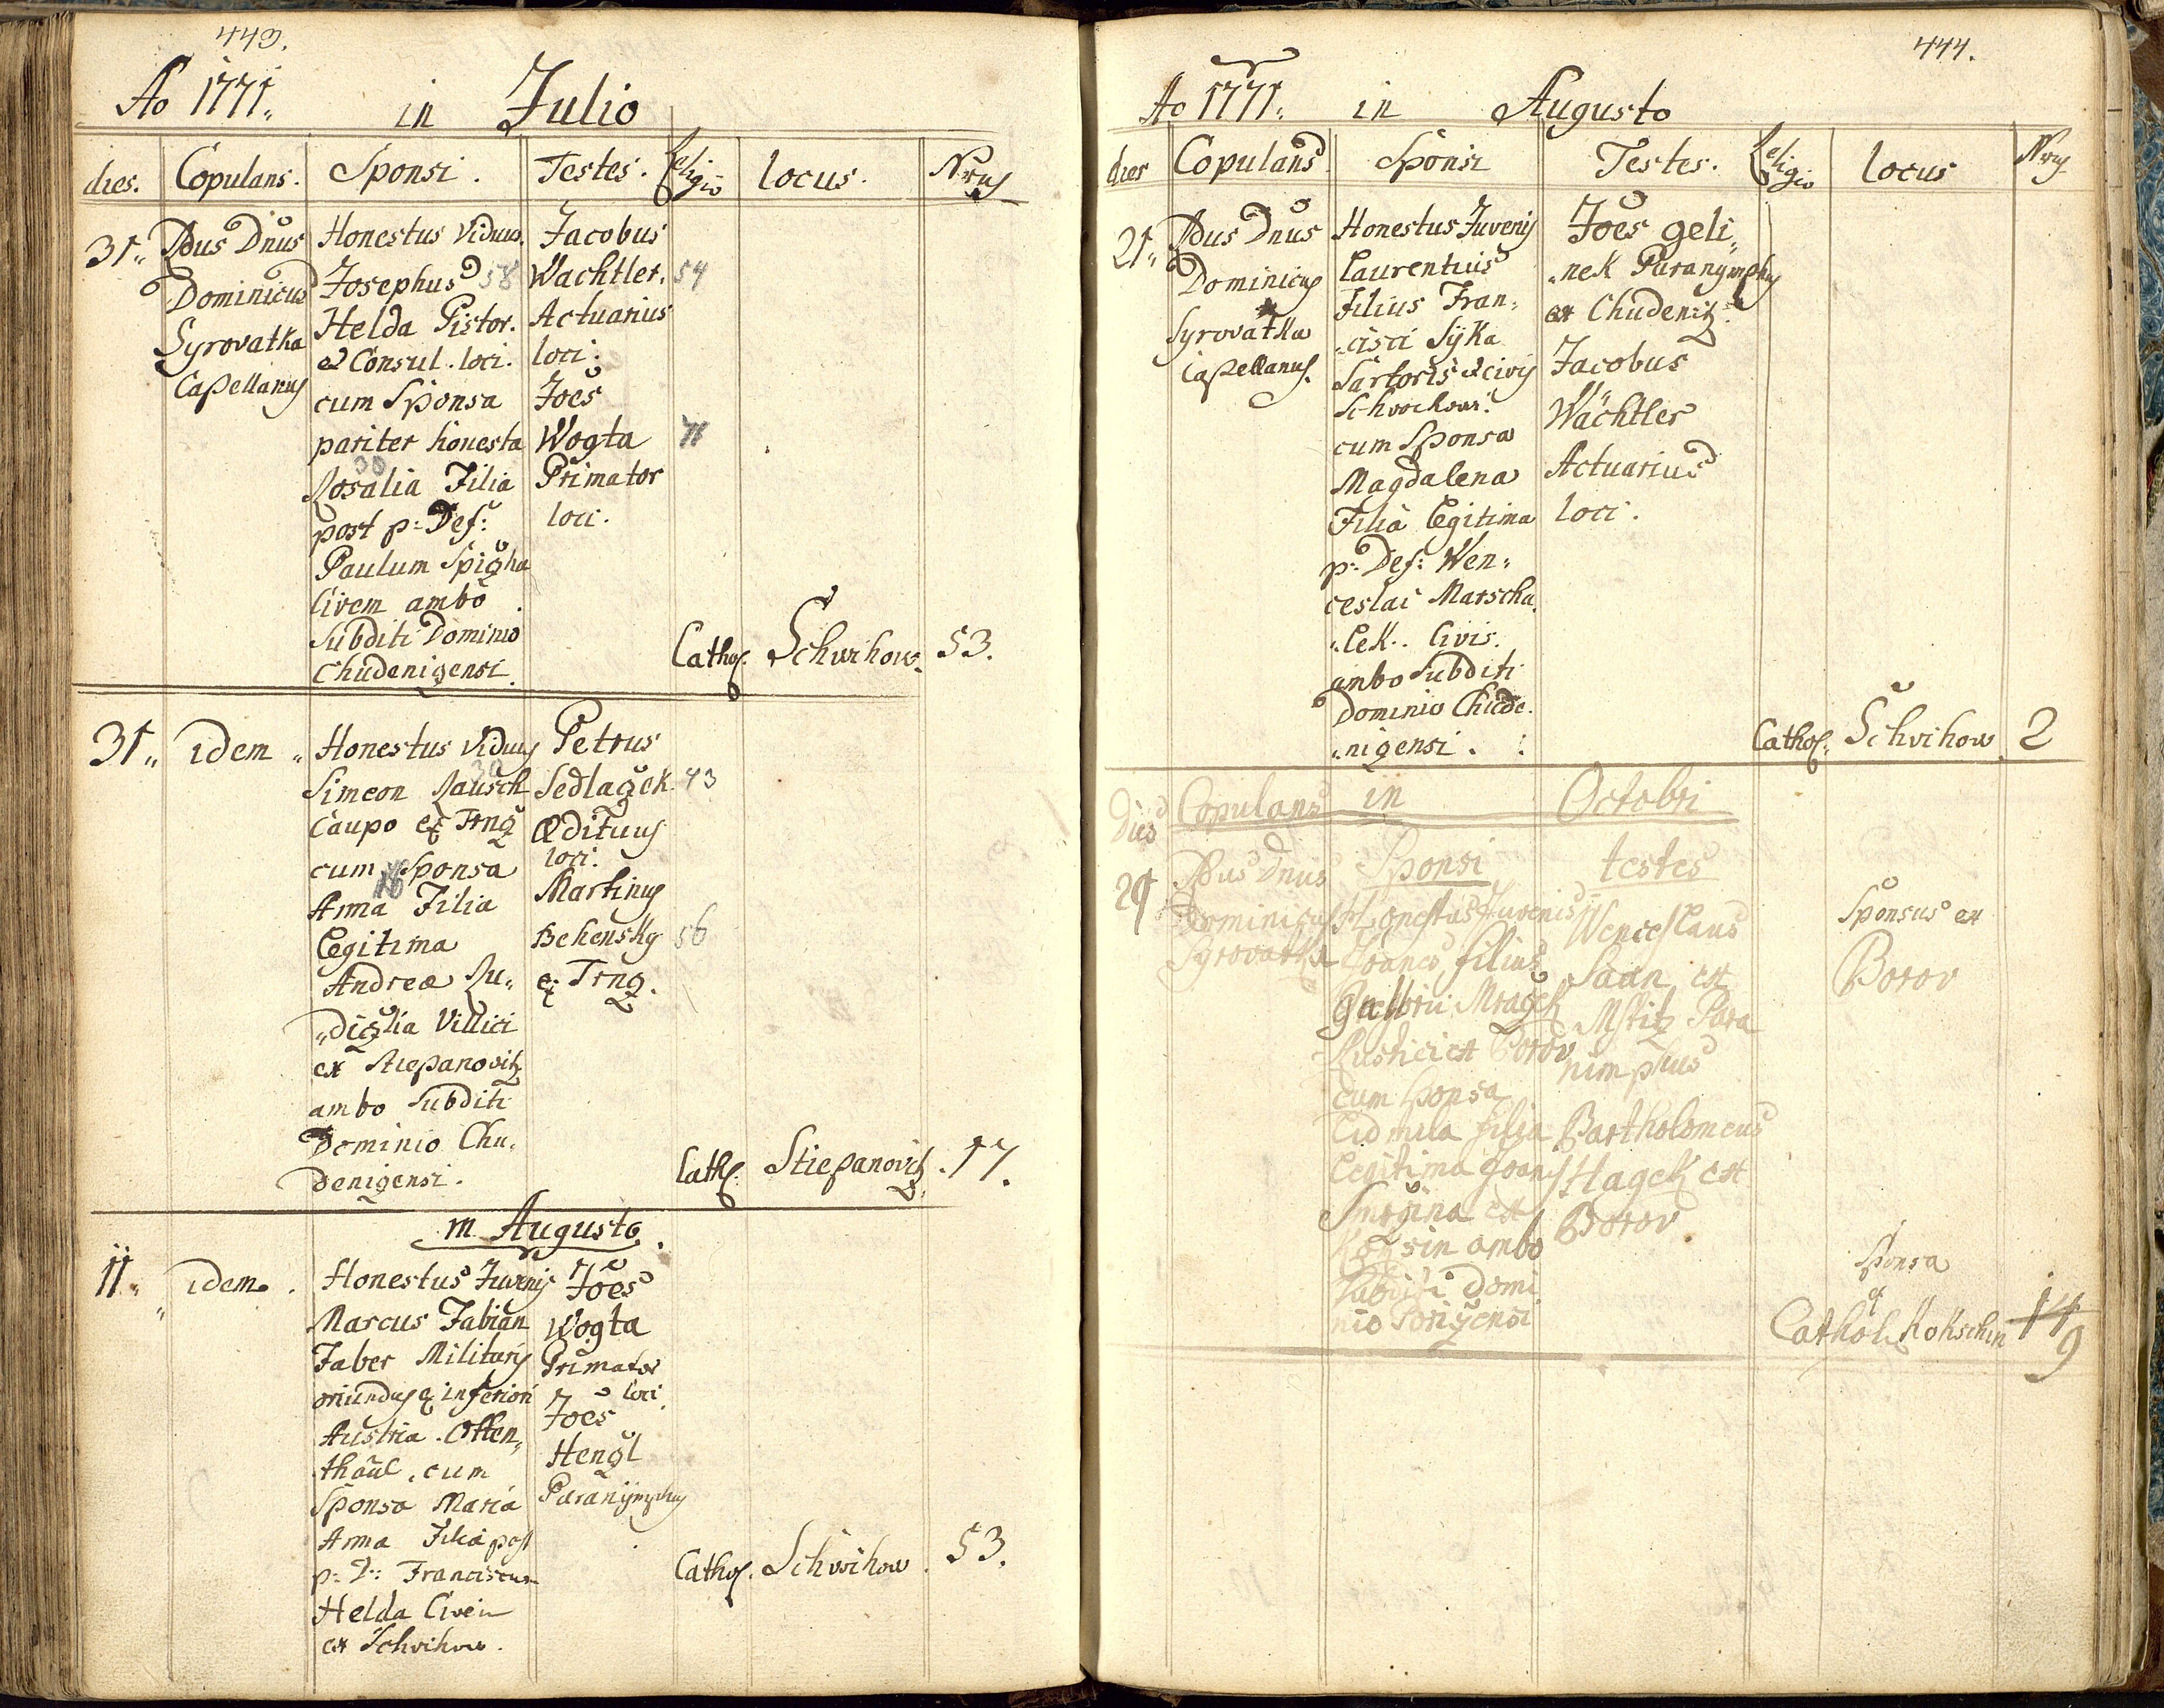 443.
Ao 1771. in Julio
dies. Copulans. Sponsi. Testes. Religio locus. Nrus
31. Rdus Dnus
Dominicus
Syrovatka
Capellanus
Honestus Viduus.
Josephus 58
Helda Pistor.
et Consul. loci.
cum Sponsa
pariter honesta
30
Rosalia Filia
post p: Def:
Paulum Spiģha
Civem ambo
Subditi Dominio
Chudenigensi.
Jacobus
Wachtler. 54
Actuarius
loci.
Joes
Wogta 71
Primator
loci.
Cathol. Schwihow. 53.
31. idem
Honestus Viduus
30
Simeon Rausch
Caupo ex Trnģ
cum Sponsa
18
Anna Filia
legitima
Andreæ Ru,,
,,diģlia Villici
ex Stiepanovitz
ambo Subditi
Dominio Chu,,
denigensi.
Petrus
Sedlaģek 43
Ædituus
loci.
Martinus
Behensky 56
ex Trng.
Cathol. Stiepanovitz. 17.
in Augusto.
11. idem.
Honestus Juvenis
Marcus Fabian
Faber Militaris
oriundus ex inferiori
Austria. Otten,,
thaul, cum
Sponsa Maria
Anna Filia post
p: D: Franciscum
Helda Civem
ex Schwihow.
Joes
Wogta
Primator
loci.
Joes
Hengl
Paranymphus
Cathol. Schwihow. 53.
444.
Ao 1771. in Augusto
dies Copulans Sponsi Testes. Religio locus Nrus
21. Rdus Dnus
Dominicus
Syrovatka
Capellanus.
Honestus Juvenis
Laurentius
Filius Fran,,
,,cisci Sÿka
Sartoris et civis
Schwihow.
cum Sponsa
Magdalena
Filia legitima
p: Def: Wen,,
ceslai Marscha,,
,,lek. Civis.
ambo Subditi
Dominio Chude,,
,,nigensi.
Joes geli,,
,,nek Paranymphus
ex Chudenitz.
Jacobus
Wächtler
Actuarius
loci.
Cathol. Schvihow 2
Dies Copulans in Octobri
Sponsi testes
29 Rdus Dnus
Dominicus
Syrovatka
Honestus Juvenis
Joanes filius
Mraģek
Rustici ex Borov
cum sponsa
Lidmila filia
Legitima Joanis
Smrģina ex
Kokssin ambo
Subditi Domi
nio
Wenceslaus
Saan ex
Mstitz Para
nimphus
Bartholomeus
Hagek ex
Borov.
Sponsus ex
Borov
Sponsa
ex
Cathol. Kokschin 14
9